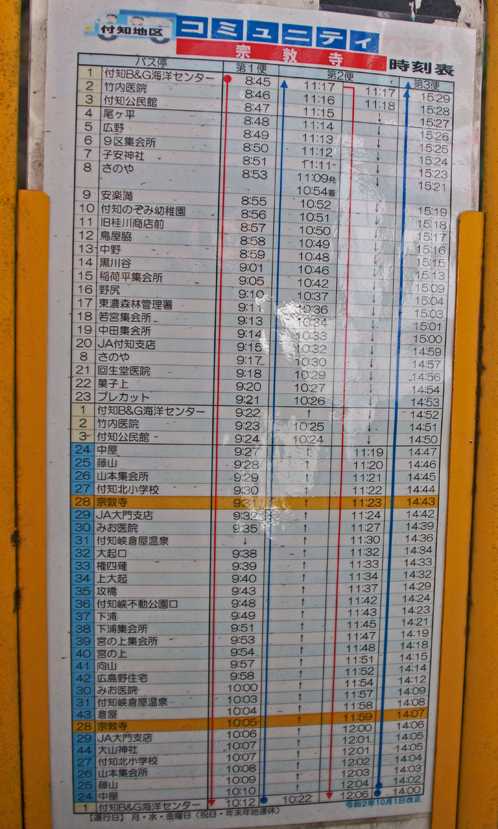 付知地区 コミュニティ
宗敦寺 時刻表
バス停 第1便 第2便 第3便
1 付知B&G海洋センター 8:45 11:17 11:17 15:29
2 竹内医院 8:46 11:16 11:18 15:28
3 付知公民館 8:47 11:15 ↓ 15:27
4 尾ヶ平 8:48 11:14 ↓ 15:26
5 広野 8:49 11:13 ↓ 15:25
6 9区集会所 8:50 11:12 ↓ 15:24
7 子安神社 8:51 11:11 ↓ 15:23
8 さのや 8:53 11:09発 ↓ 15:21
10:54着
9 安楽満 8:55 10:52 ↓ 15:19
10 付知のぞみ幼稚園 8:56 10:51 ↓ 15:18
11 旧桂川商店前 8:57 10:50 ↓ 15:17
12 鳥屋脇 8:58 10:49 ↓ 15:16
13 中野 8:59 10:48 ↓ 15:15
14 黒川谷 9:01 10:46 ↓ 15:13
15 稲荷平集会所 9:05 10:42 ↓ 15:09
16 野尻 9:10 10:37 ↓ 15:04
17 東濃森林管理署 9:11 10:36 ↓ 15:03
18 若宮集会所 9:13 10:34 ↓ 15:01
19 中田集会所 9:14 10:33 ↓ 15:00
20 JA付知支店 9:15 10:32 ↓ 14:59
8 さのや 9:17 10:30 ↓ 14:57
21 回生堂医院 9:18 10:29 ↓ 14:56
22 菓子上 9:20 10:27 ↓ 14:54
23 プレカット 9:21 10:26 ↓ 14:53
1 付知B&G海洋センター 9:22 ↑ ↓ 14:52
2 竹内医院 9:23 10:25 ↓ 14:51
3 付知公民館 9:24 10:24 ↓ 14:50
24 中屋 9:27 ↑ 11:19 14:47
25 藤山 9:28 ↑ 11:20 14:46
26 山本集会所 9:29 ↑ 11:21 14:45
27 付知北小学校 9:30 ↑ 11:22 14:44
28 宗敦寺 ↑ 11:23 14:43
29 JA大門支店 9:32 ↑ 11:24 14:42
30 みお医院 9:35 ↑ 11:27 14:39
31 付知峡倉屋温泉 ↓ ↑ 11:30 14:36
32 大起口 9:38 ↑ 11:32 14:34
33 権四薙 9:39 ↑ 11:33 14:33
34 上大起 9:40 ↑ 11:34 14:32
35 攻橋 9:43 ↑ 11:37 14:29
36 付知峡不動公園口 9:48 ↑ 11:42 14:24
37 下浦 9:49 ↑ 11:43 14:23
38 下浦集会所 9:51 ↑ 11:45 14:21
39 宮の上集会所 9:53 ↑ 11:47 14:19
40 宮の上 9:54 ↑ 11:48 14:18
41 向山 9:57 ↑ 11:51 14:15
42 広島野住宅 9:58 ↑ 11:52 14:14
30 みお医院 10:00 ↑ 11:54 14:12
31 付知峡倉屋温泉 10:03 ↑ 11:57 14:09
43 倉屋 10:04 ↑ 11:58 14:08
28 宗敦寺 10:05 ↑ 11:59 14:07
29 JA大門支店 10:06 ↑ 12:00 14:06
44 大山神社 10:07 ↑ 12:01 14:05
27 付知北小学校 10:07 ↑ 12:01 14:05
26 山本集会所 10:08 ↑ 12:02 14:04
25 藤山 10:09 ↑ 12:03 14:03
24 中屋 10:10 ↑ 12:04 14:02
1 付知B&G海洋センター 10:12 10:22 12:06 14:00
【運行日】 月・水・金曜日(祝日・年末年始運休) 令和2年10月1日改正